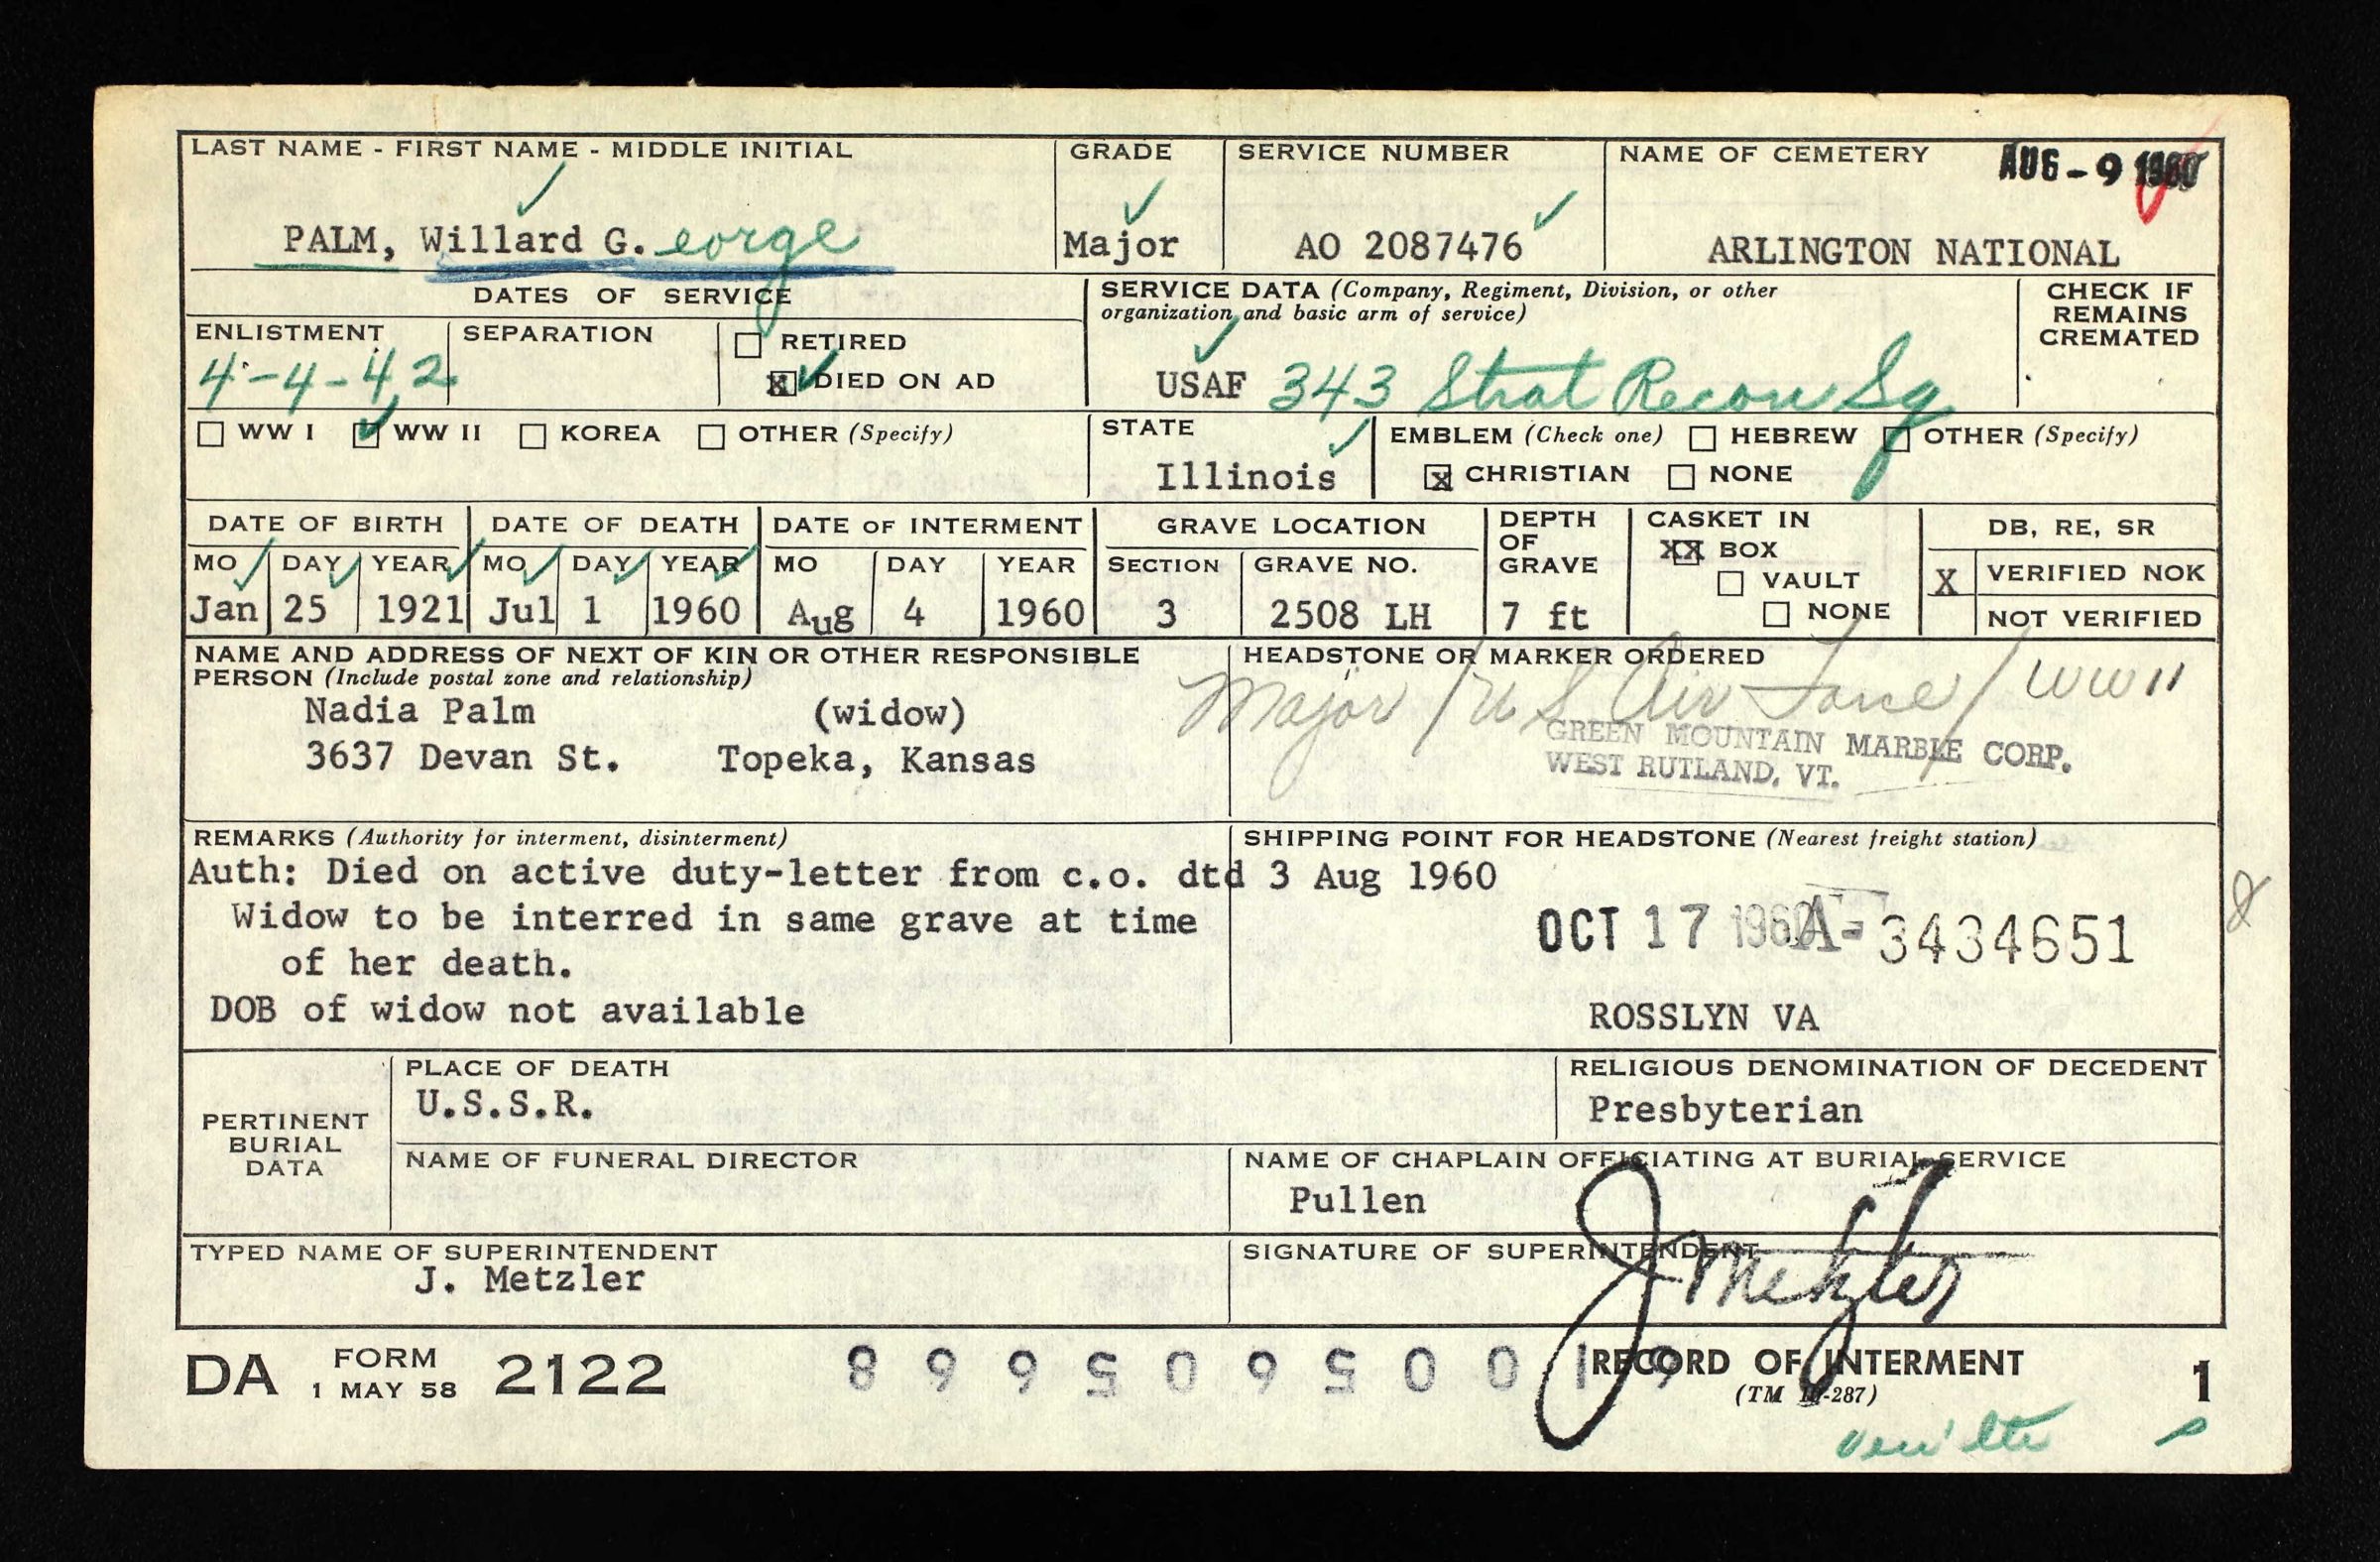 LAST NAME - FIRST NAME - MIDDLE INITIAL
PALM, Willard G.eorge
GRADE
Major
SERVICE NUMBER
AO 2087476
NAME OF CEMETERY
AUG - 9 1960
ARLINGTON NATIONAL
DATES OF SERVICE
ENLISTMENT
4-4-42
SEPARATION
RETIRED
X DIED ON AD
SERVICE DATA (Company, Regiment, Division, or other
organization and basic arm of service)
USAF 343 Strat Recon Sq
CHECK IF
REMAINS
CREMATED
WW I WW II KOREA OTHER (Specify)
STATE
Illinois
EMBLEM (Check one) HEBREW OTHER (Specify)
x CHRISTIAN NONE
DATE OF BIRTH
MO DAY YEAR
Jan 25 1921
DATE OF DEATH
MO DAY YEAR
Jul 1 1960
DATE OF INTERMENT
MO DAY YEAR
Aug 4 1960
GRAVE LOCATION
SECTION GRAVE NO.
3 2508 LH
DEPTH
OF
GRAVE
7 ft
CASKET IN
XX BOX
VAULT
NONE
DB, RE, SR
X VERIFIED NOK
NOT VERIFIED
NAME AND ADDRESS OF NEXT OF KIN OR OTHER RESPONSIBLE
PERSON (Include postal zone and relationship)
Nadia Palm (widow)
3637 Devan St. Topeka, Kansas
HEADSTONE OR MARKER ORDERED
Major / U S Air Force / WW II
GREEN MOUNTAIN MARBLE CORP.
WEST RUTLAND, VT.
REMARKS (Authority for interment, disinterment)
Auth: Died on active duty-letter from c.o. dtd 3 Aug 1960
Widow to be interred in same grave at time
of her death.
DOB of widow not available
SHIPPING POINT FOR HEADSTONE (Nearest freight station)
OCT 17 1960 A- 3434651
ROSSLYN VA
PERTINENT
BURIAL
DATA
PLACE OF DEATH
U.S.S.R.
RELIGIOUS DENOMINATION OF DECEDENT
Presbyterian
NAME OF FUNERAL DIRECTOR
NAME OF CHAPLAIN OFFICIATING AT BURIAL SERVICE
Pullen
TYPED NAME OF SUPERINTENDENT
J. Metzler
SIGNATURE OF SUPERINTENDENT
J Metzler
DA FORM 2122
1 MAY 58
RECORD OF INTERMENT
(TM 10-287)
1